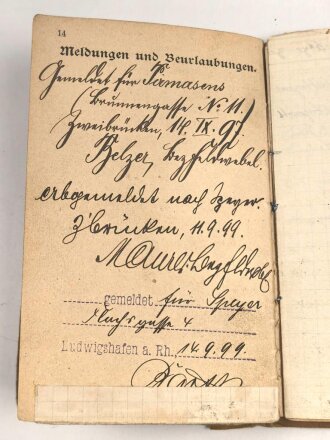 14
Meldungen und Beurlaubungen.
Gemeldet für Pirmasens
(Brunnengasse No 11.)
Zweibrücken, 14. IX. 97.
Belzer, Bezfeldwebel.
Abgemeldet nach Speyer.
Z'brücken, 11.9.99.
Maurer Bezfldwbl
gemeldet für Speyer
Flachsgasse 4
Ludwigshafen a. Rh., 14.9.99.